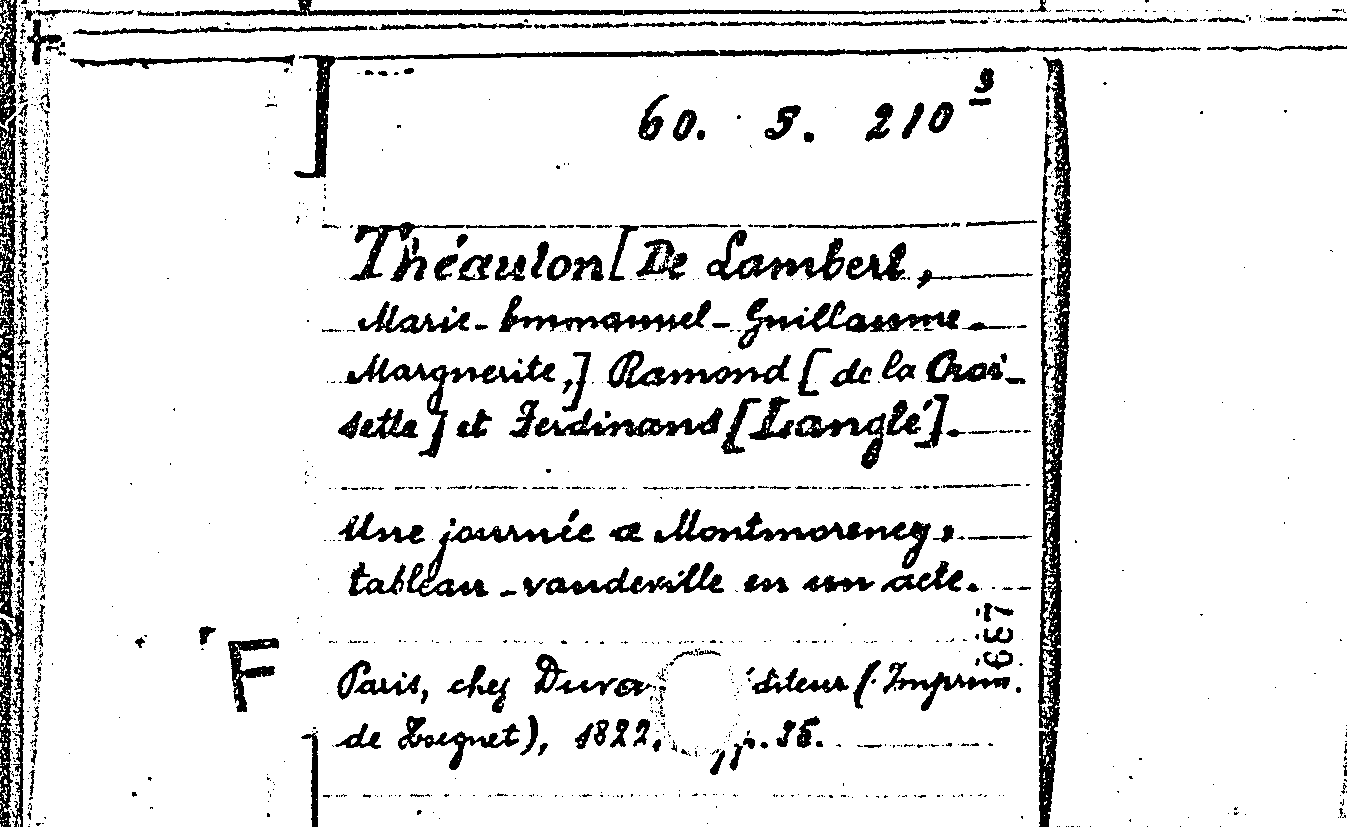 60. S. 210⁹
Théaulon [De Lambert,
Marie-Emmanuel-Guillaume-
Marguerite,] Ramond [de la Croi-
sette] et Ferdinand [Langlé].
Une journée a Montmorency,
tableau-vaudeville en un acte.
667
F
Paris, chez Duva diteur (Imprim.
de), 1822, pp. 36.